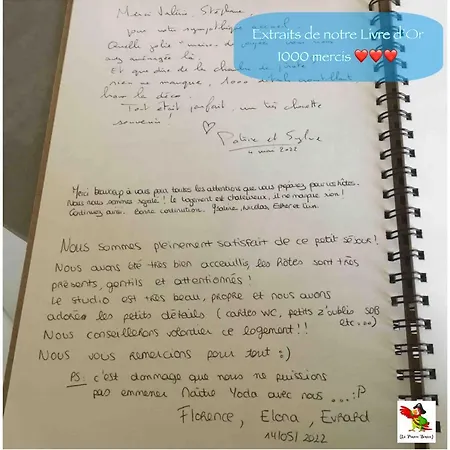 Extraits de notre Livre d'Or
1000 mercis ❤❤❤
Merci Valérie, Stéphane,
pour votre sympathique accueil...
Quelle jolie
avez aménagée là
Et que dire de la chambre de
rien ne manque, 1000
la déco.
Tout était parfait, un très chouette
souvenir !
Patrice et Sylvie
4 mai 2022
Merci beaucoup à vous pour toutes les attentions que vous préparez pour vos hôtes.
Nous nous sommes régalé ! Le logement est chaleureux, il ne manque rien !
Continuez ainsi. Bonne continuation. Nicolas, Esther et
Nous sommes pleinement satisfait de ce petit séjour !
Nous avons été très bien accueillis, les hôtes sont très
présents, gentils et attentionnés !
Le studio est très beau, propre et nous avons
adorée les petits détails (cartes WC, petits z'oublis SDB
etc...)
Nous conseillerons volontier ce logement !!
Nous vous remercions pour tout :)
PS : c'est dommage que nous ne puissions
pas emmener Maître Yoda avec nous ... :P
Florence, Elona, Evrard
14/05/2022